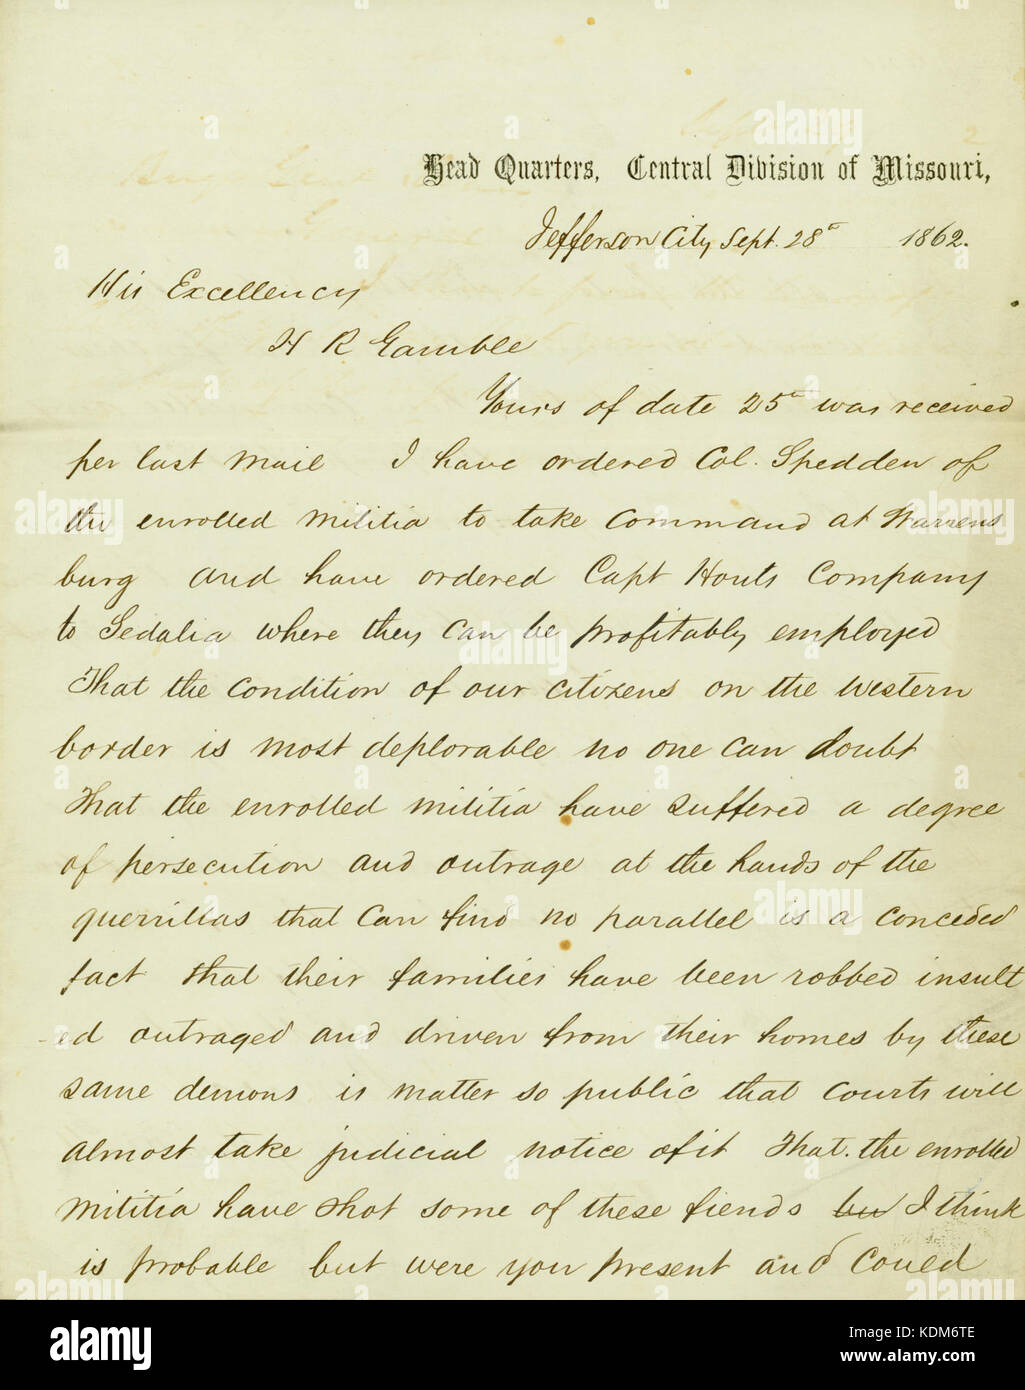 Head Quarters, Central Division of Missouri,
Jefferson City Sept. 28" 1862.
His Excellency
H R Gamble
Yours of date 25" was received
per last mail I have ordered Col. Spedden of
the enrolled militia to take command at Warrens
burg and have ordered Capt Houts Company
to Sedalia where they can be profitably employed
That the condition of our citizens on the western
border is most deplorable no one can doubt
That the enrolled militia have suffered a degree
of persecution and outrage at the hands of the
guerrillas that can find no parallel is a conceded
fact that their families have been robbed insult
ed outraged and driven from their homes by these
same demons is matter so public that courts will
almost take judicial notice of it That. the enrolled
militia have shot some of these fiends I think
is probable but were you present and could
alamy
Image ID: KDM6TE
www.alamy.com